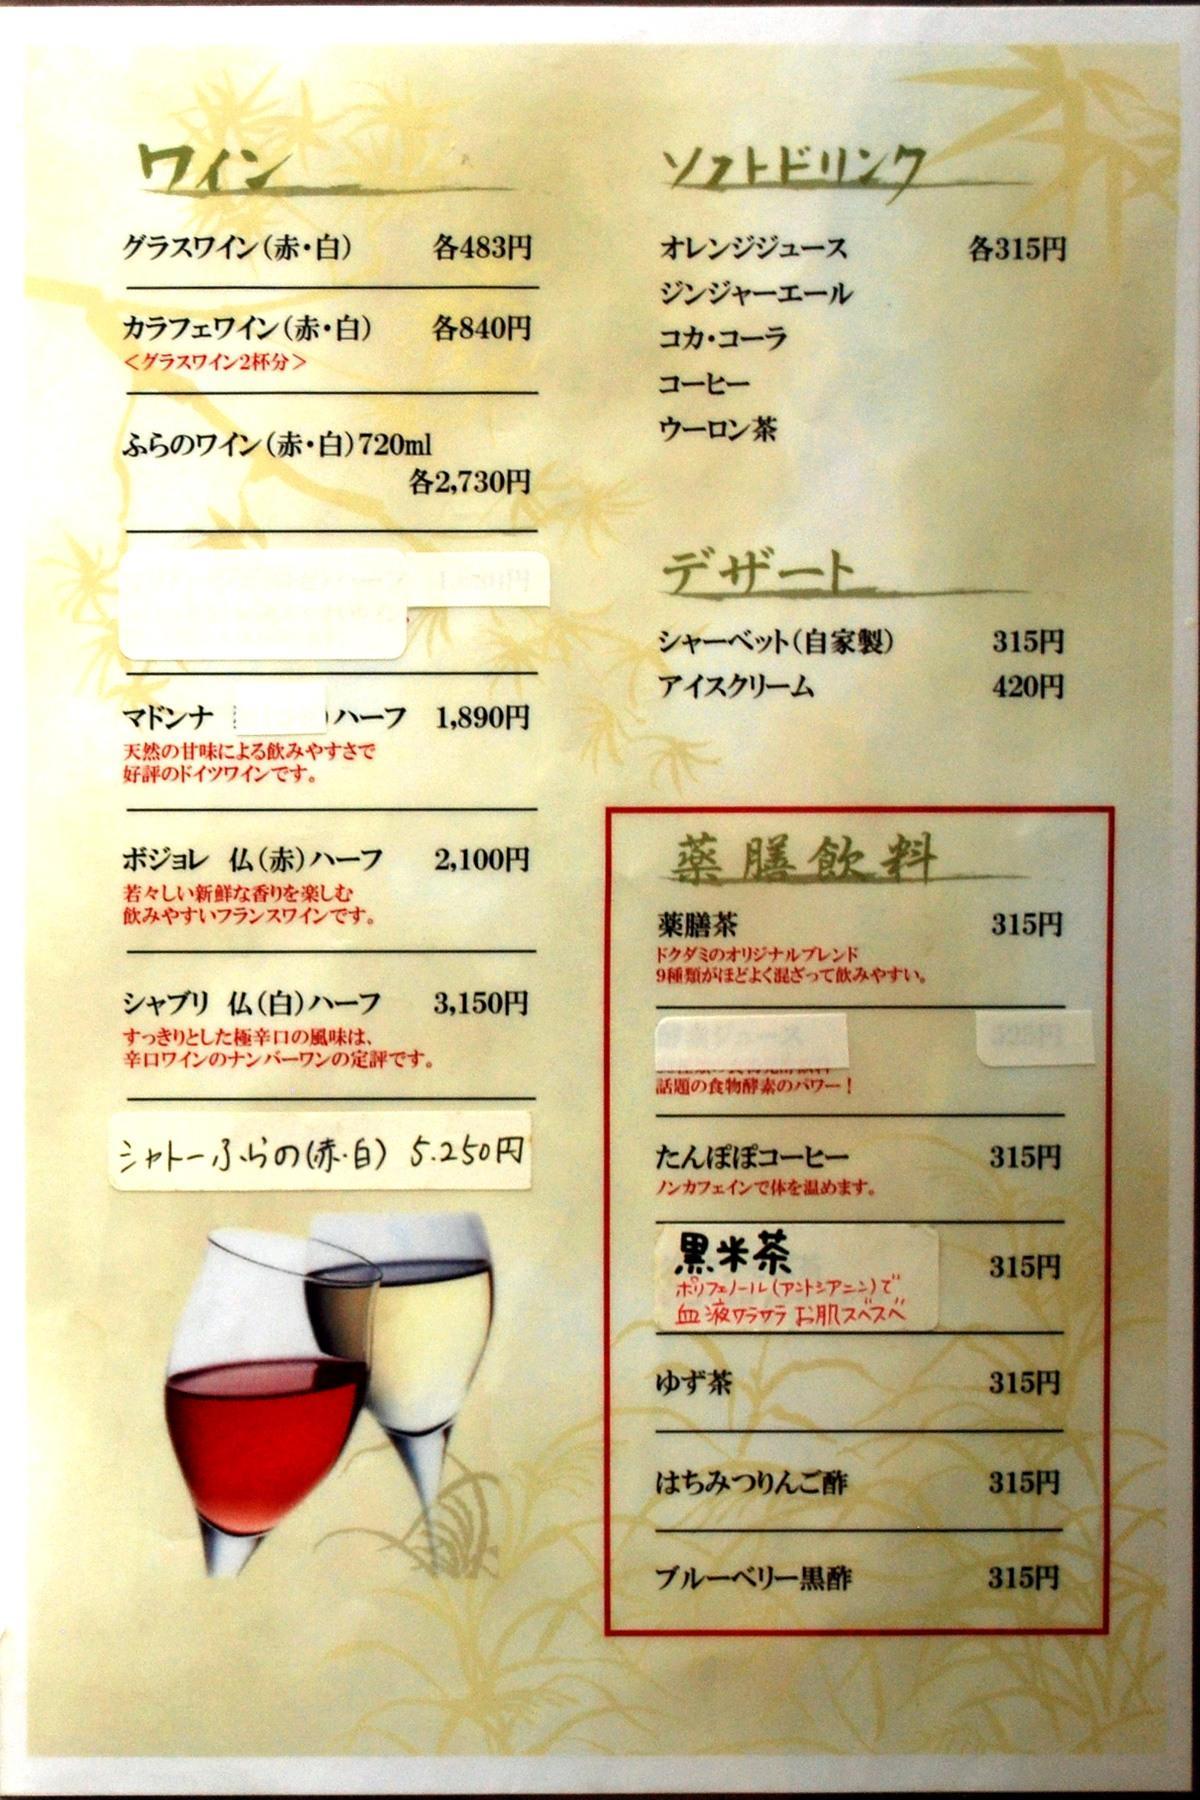 ワイン
グラスワイン(赤・白) 各483円
カラフェワイン(赤・白) 各840円
<グラスワイン2杯分>
ふらのワイン(赤・白)720ml
各2,730円
マドンナ ハーフ 1,890円
天然の甘味による飲みやすさで
好評のドイツワインです。
ボジョレ 仏(赤)ハーフ 2,100円
若々しい新鮮な香りを楽しむ
飲みやすいフランスワインです。
シャブリ 仏(白)ハーフ 3,150円
すっきりとした極辛口の風味は、
辛口ワインのナンバーワンの定評です。
シャトーふらの(赤・白) 5.250円
ソフトドリンク
オレンジジュース 各315円
ジンジャーエール
コカ・コーラ
コーヒー
ウーロン茶
デザート
シャーベット(自家製) 315円
アイスクリーム 420円
薬膳飲料
薬膳茶 315円
ドクダミのオリジナルブレンド
9種類がほどよく混ざって飲みやすい。
話題の食物酵素のパワー!
たんぽぽコーヒー 315円
ノンカフェインで体を温めます。
黒米茶 315円
ポリフェノール(アントシアニン)で
血液サラサラ お肌スベスベ
ゆず茶 315円
はちみつりんご酢 315円
ブルーベリー黒酢 315円